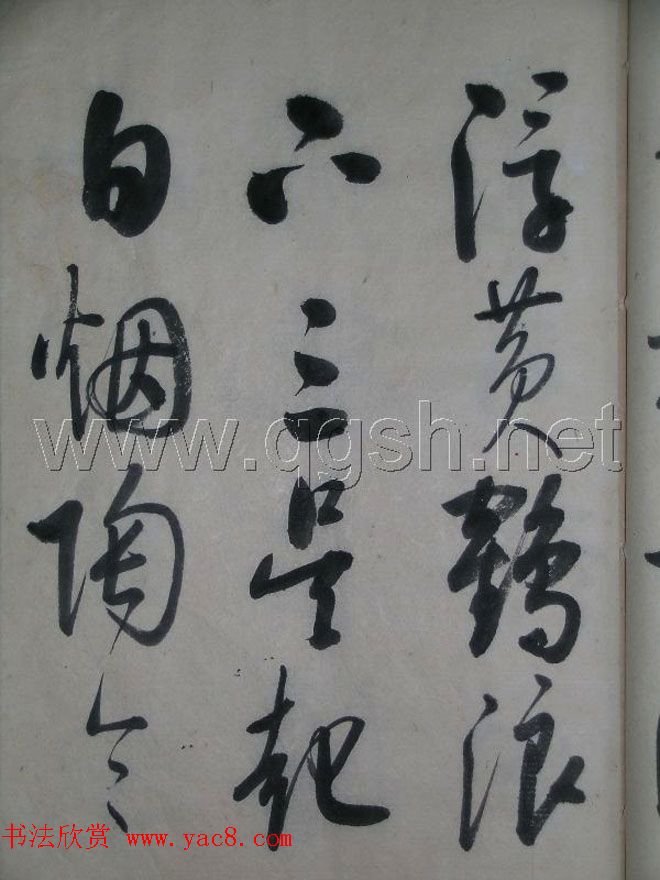 浮黄鹤浪
下三吴起
白烟陶令
www.qgsh.net
书法欣赏 www.yac8.com